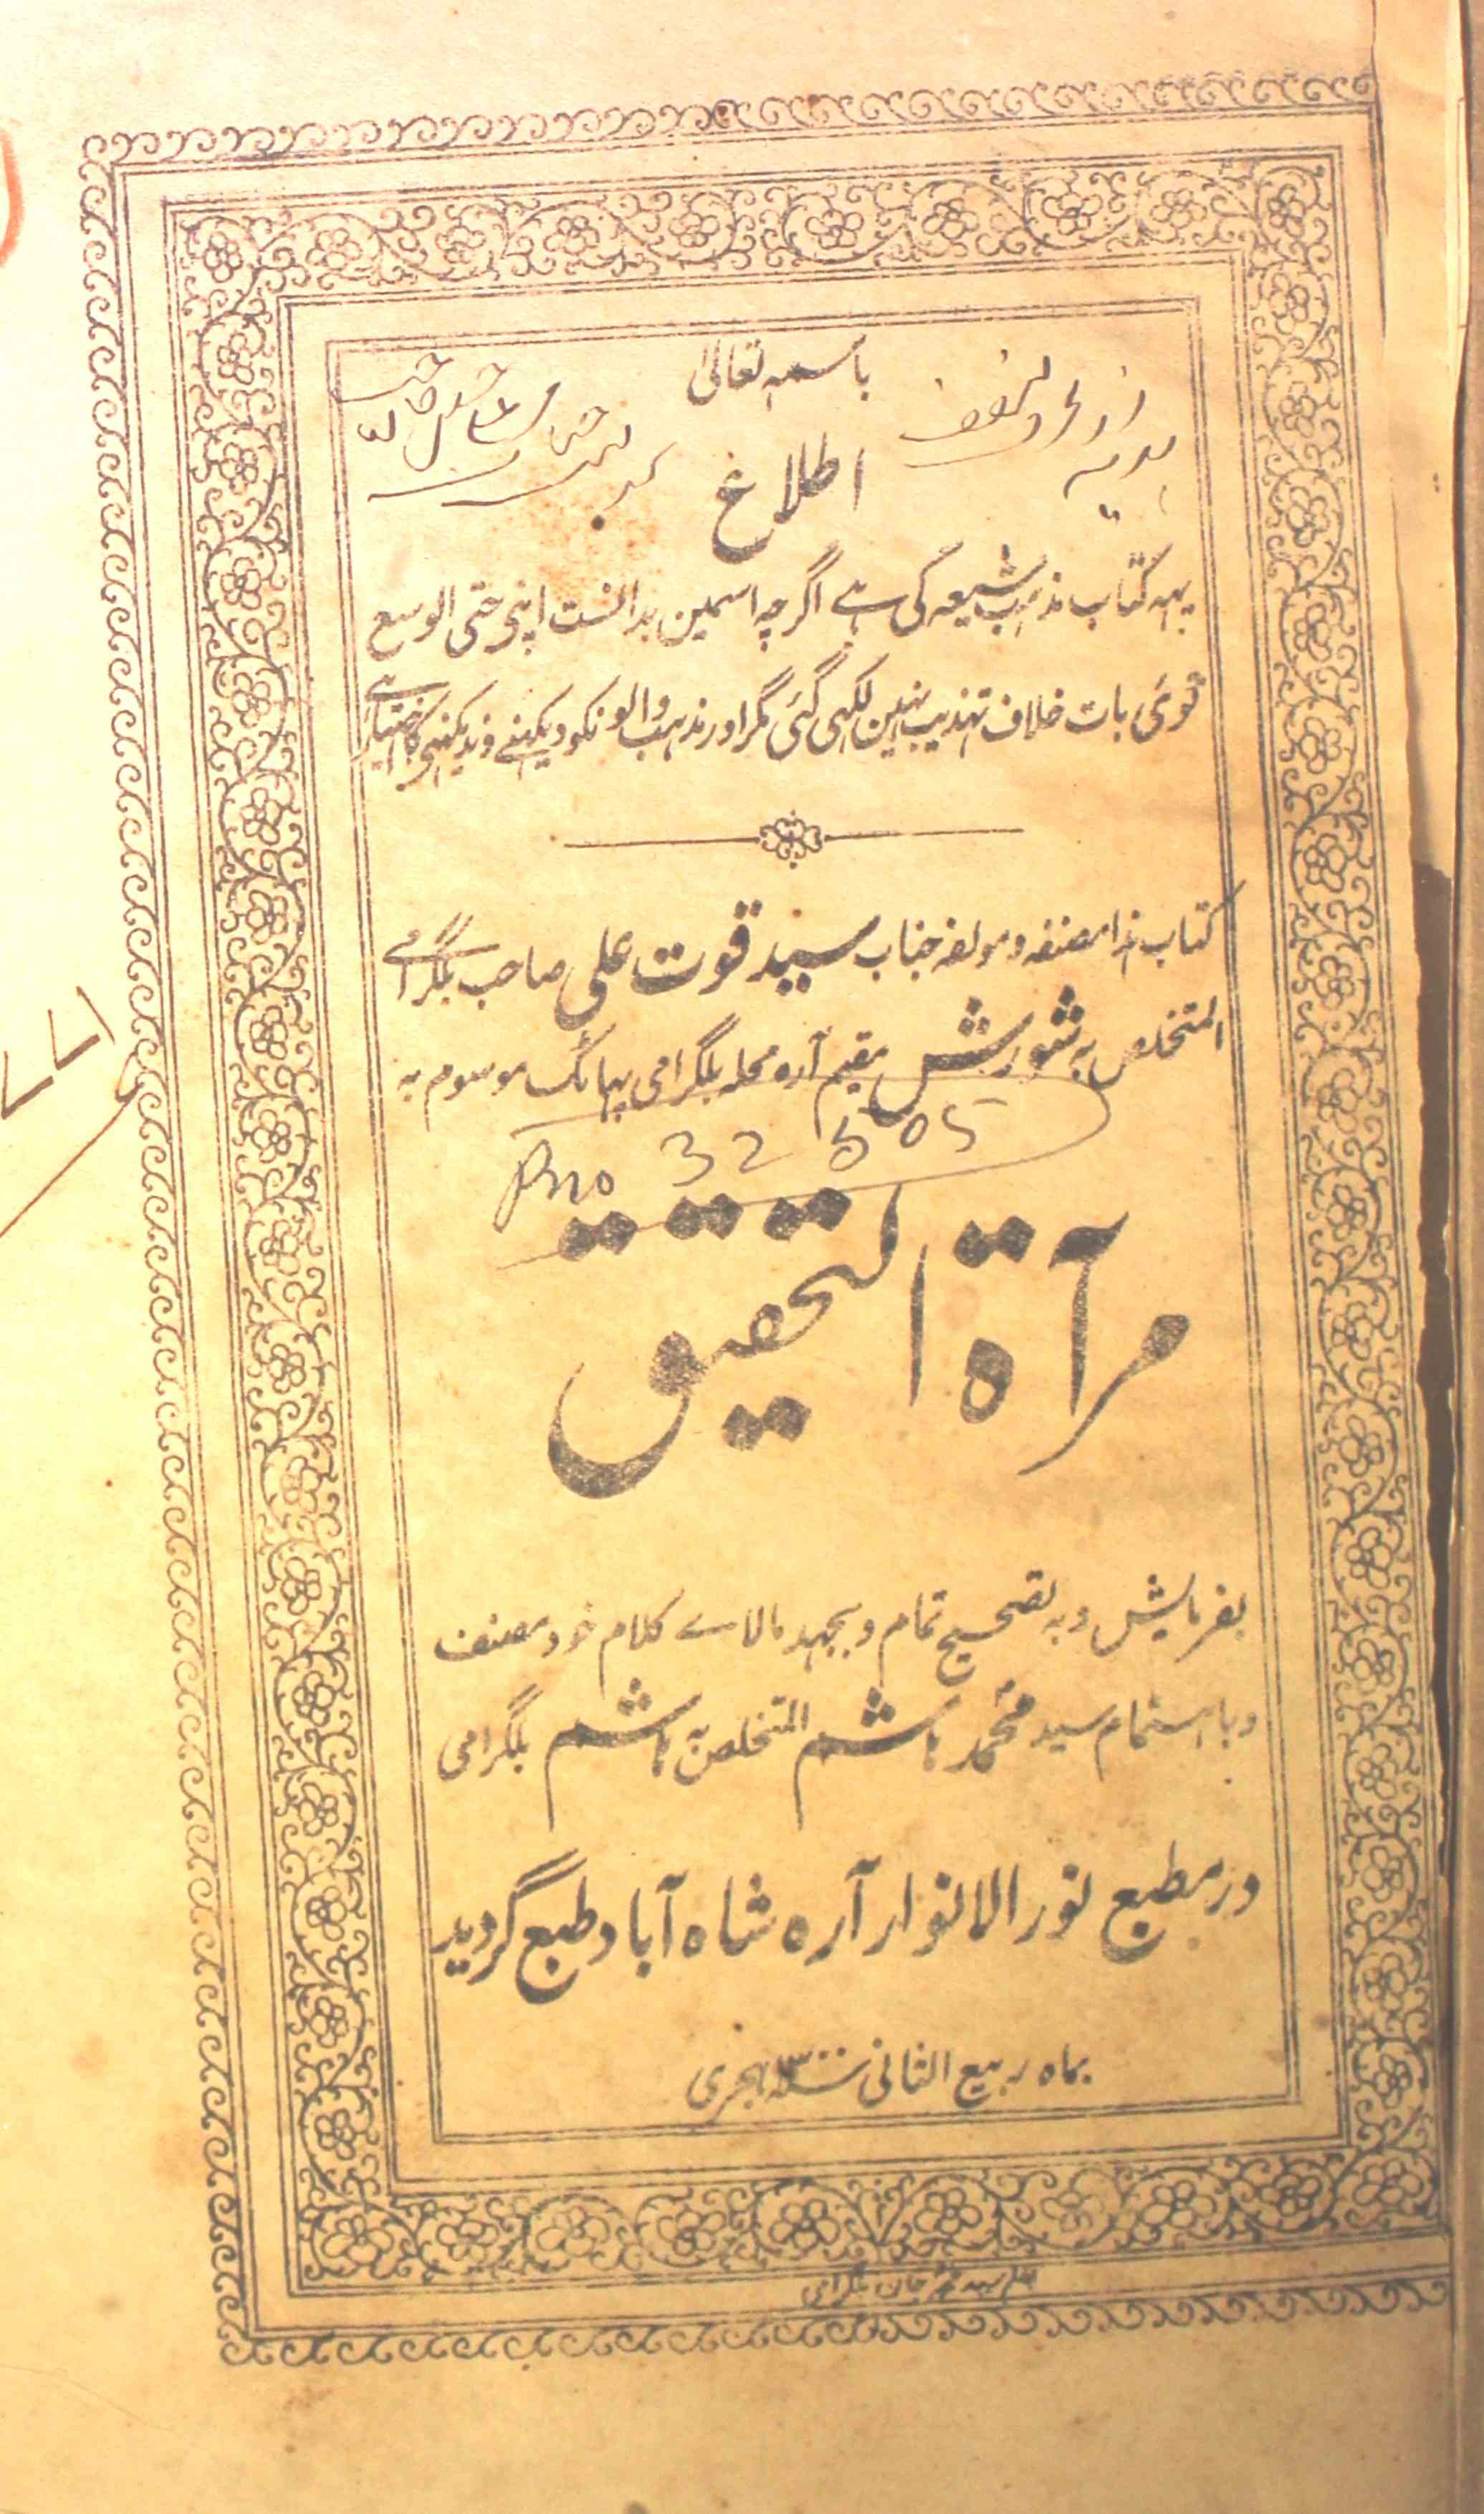 باسمہ تعالیٰ
اطلاع
یہہ کتاب مذہب شیعہ کی ہے اگرچہ اسمین بدانست اپنی حتی الوسع
کوئی بات خلاف تہذیب نہین لکہی گئی مگر اور مذہب والونکو دیکہنے و ندیکہنے کا اختیار ہے
کتاب ہذا مصنفہ و مولفہ جناب سید قوت علی صاحب بلگرامی
المتخلص بہ شورش مقیم آرہ محلہ بلگرامی پہاٹک موسوم بہ
32505
مرآة التحقیق
بفرمایش و بہ تصحیح تمام و بجہد مالا کلام خود مصنف
و باہتمام سید محمد ہاشم المتخلص بہ ہاشم بلگرامی
در مطبع نور الانوار آرہ شاہ آباد طبع گردید
بماہ ربیع الثانی سنہ ۱۳۰۰ ہجری